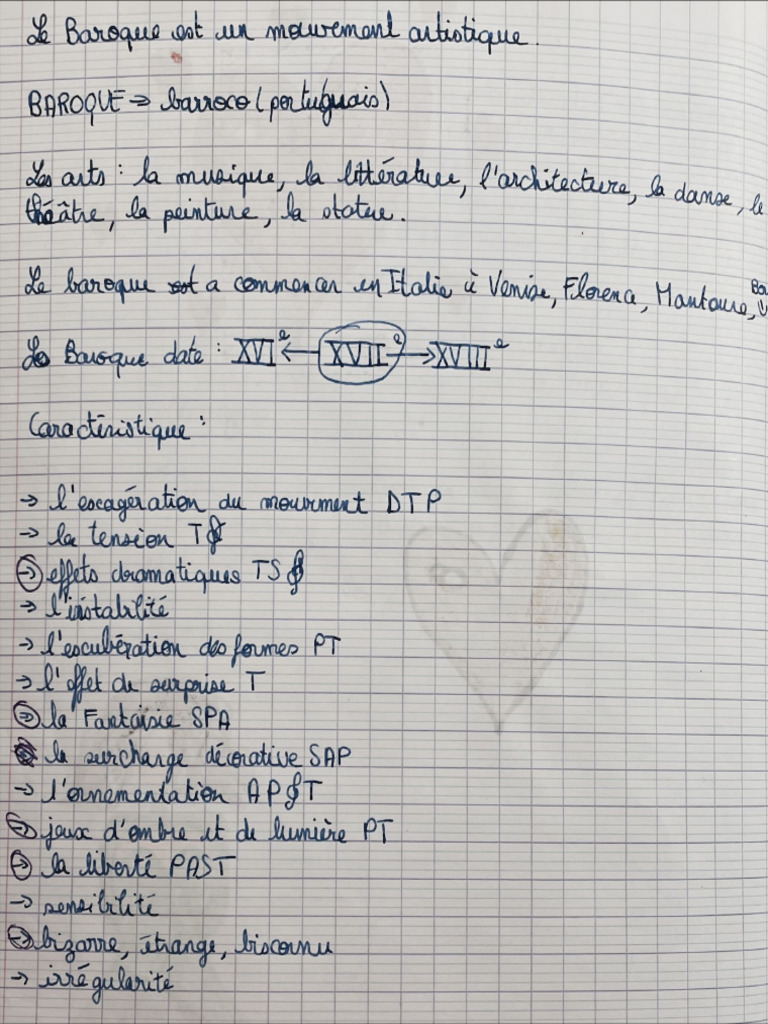 Le Baroque est un mouvement artistique.
BAROQUE → barroco (portuguais)
Les arts : la musique, la littérature, l'architecture, la danse, le
théâtre, la peinture, la statue.
Le baroque a commencer en Italie à Venise, Florence, Mantoue,
Le Baroque date : XVIe ← XVIIe → XVIIIe
Caractéristique :
→ l'escagération du mouvment DTP
→ la tension T
→ effets dramatiques TS
→ l'instabilité
→ l'escubération des formes PT
→ l'effet de surprise T
→ la Fantaisie SPA
la surcharge décorative SAP
→ l'ornementation AP T
→ jeux d'ombre et de lumière PT
→ la liberté PAST
→ sensibilité
→ bizarre, étrange, biscornu
→ irrégularité